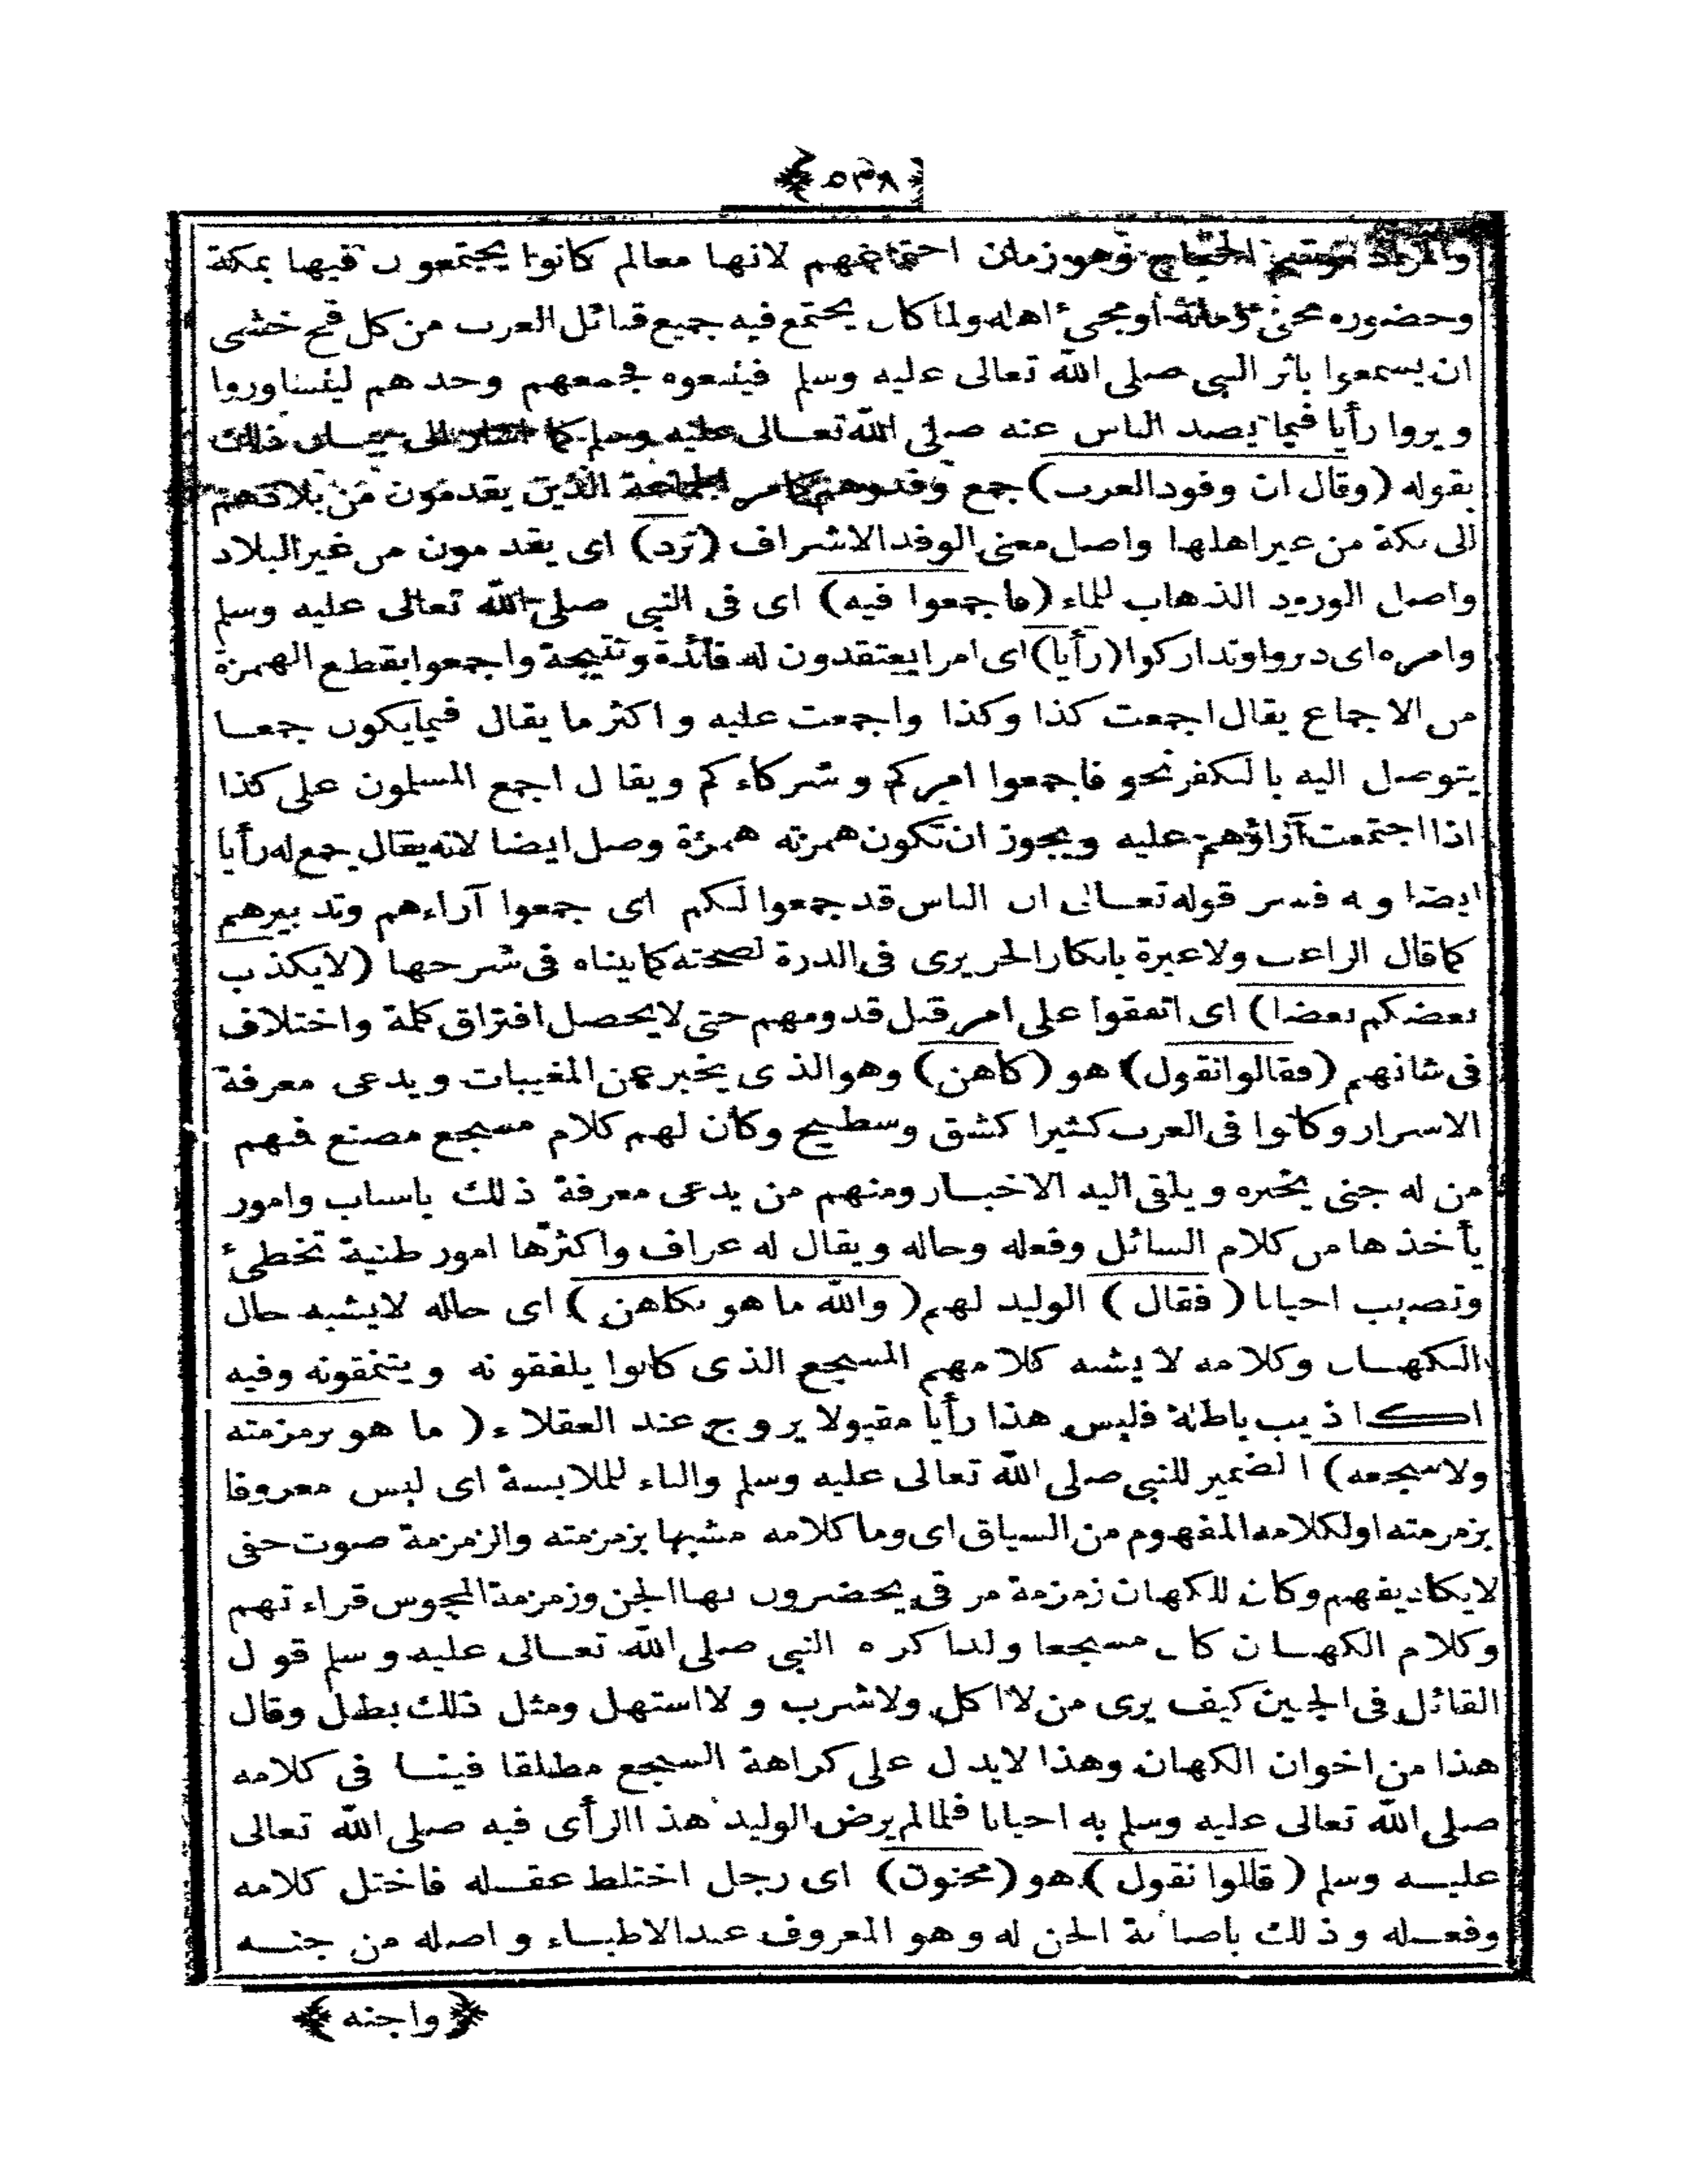 ﴿٥٣٨﴾
والمراد موسم الحجاج وهو زمان اجتماعهم لانها معالم كانوا يجتمعون فيها بمكة
وحضوره مجئ زمانه أومجئ اهله ولما كان يجتمع فيه جميع قبائل العرب من كل فج خشى
ان يسمعوا بامر النبى صلى الله تعالى عليه وسلم فيتبعوه فجمعهم وحدهم ليتشاوروا
ويروا رأيا فيما يصد الناس عنه صلى الله تعالى عليه وسلم كما اشار الى بيان ذلك
بقوله (وقال ان وفود العرب) جمع وفد وهم كامر الجماعة الذين يقدمون من بلادهم
الى مكة من غير اهلها واصل معنى الوفد الاشراف (ترد) اى يقدمون من غير البلاد
واصل الورود الذهاب للماء (فاجمعوا فيه) اى فى النبى صلى الله تعالى عليه وسلم
وامره اى دبروا وتداركوا (رأيا) اى امرا يعتقدون له فائدة ونتيجة واجمعوا بقطع الهمزة
من الاجماع يقال اجمعت كذا وكذا واجمعت عليه واكثر ما يقال فيما يكون جمعا
يتوصل اليه بالفكر نحو فاجمعوا امركم وشركاءكم ويقال اجمع المسلمون على كذا
اذا اجتمعت آراؤهم عليه ويجوز ان تكون همزته همزة وصل ايضا لانه يقال جمع له رأيا
ايضا وبه فسر قوله تعالى ان الناس قد جمعوا لكم اى جمعوا آراءهم وتدبيرهم
كما قال الراغب ولا عبرة بانكار الحريرى فى الدرة لصحته كما بيناه فى شرحها (لا يكذب
بعضكم بعضا) اى اتفقوا على امر قبل قدومهم حتى لا يحصل افتراق كلمة واختلاف
فى شانهم (فقالوا نقول) هو (كاهن) وهو الذى يخبر عن المغيبات ويدعى معرفة
الاسرار وكانوا فى العرب كثيرا كشق وسطيح وكان لهم كلام مسجع مصنع فمنهم
من له جنى يخبره ويلقى اليه الاخبار ومنهم من يدعى معرفة ذلك باسباب وامور
يأخذها من كلام السائل وفعله وحاله ويقال له عراف واكثرها امور ظنية تخطئ
وتصيب احيانا (فقال) الوليد لهم (والله ما هو بكاهن) اى حاله لا يشبه حال
الكهان وكلامه لا يشبه كلامهم المسجع الذى كانوا يلفقونه ويتنمقونه وفيه
اكاذيب باطلة فليس هذا رأيا مقبولا يروج عند العقلاء (ما هو بزمزمته
ولا سجعه) الضمير للنبى صلى الله تعالى عليه وسلم والباء للملابسة اى ليس معروفا
بزمزمته او لكلامه المفهوم من السياق اى وما كلامه مشبها بزمزمته والزمزمة صوت خفى
لا يكاد يفهم وكان للكهان زمزمة مر قى يحضرون بها الجن وزمزمة المجوس قراءتهم
وكلام الكهان كان مسجعا ولذا كره النبى صلى الله تعالى عليه وسلم قول
القائل فى الجنين كيف يرى من لا اكل ولا شرب ولا استهل ومثل ذلك بطل وقال
هذا من اخوان الكهان وهذا لا يدل على كراهة السجع مطلقا فيتسا فى كلامه
صلى الله تعالى عليه وسلم به احيانا فلما لم يرض الوليد هذا الرأى فيه صلى الله تعالى
عليه وسلم (قالوا نقول) هو (مجنون) اى رجل اختلط عقله فاختل كلامه
وفعله وذلك باصابة الجن له وهو المعروف عند الاطباء واصله من جنه
﴿واجنه﴾